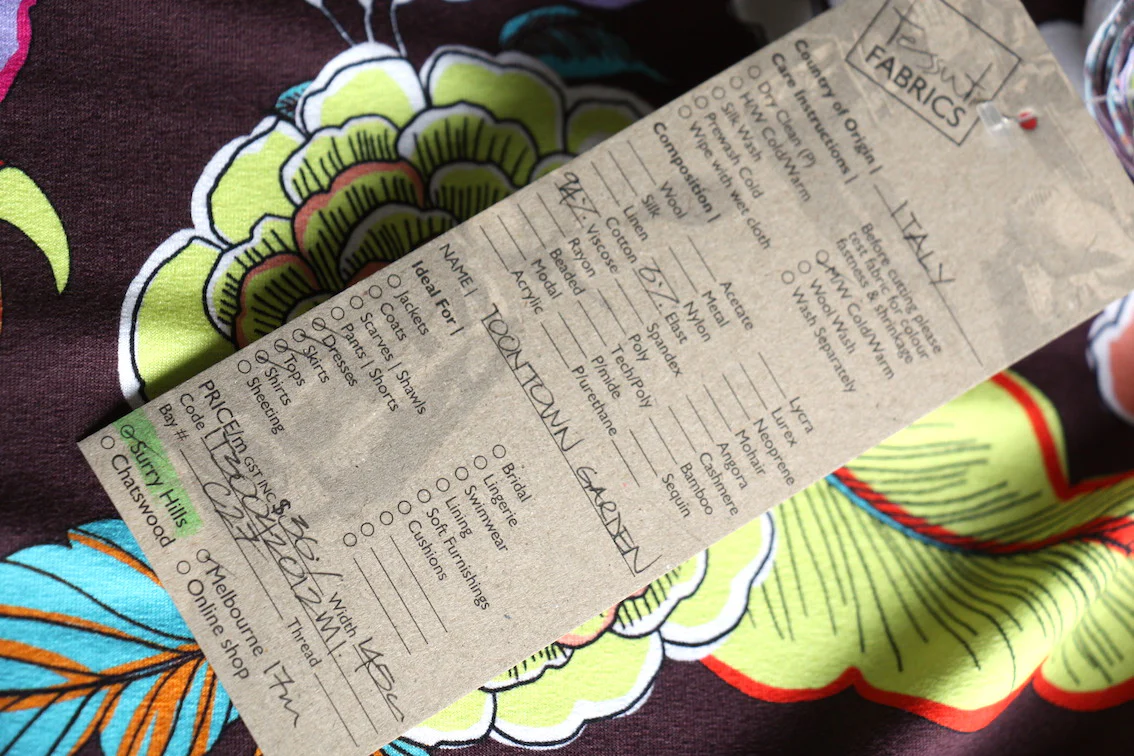 Tessuti
FABRICS
Country of Origin | ITALY
Care Instructions |
Dry Clean (P)
H/W Cold/Warm
Silk Wash
Prewash Cold
Wipe with wet cloth
Before cutting please
test fabric for colour
fastness & shrinkage
M/W Cold/Warm
Wool Wash
Wash Separately
Composition |
Wool
Silk
Linen
Cotton
94% Viscose
Rayon
Beaded
Modal
Acrylic
Acetate
Metal
Nylon
Elast
Spandex
Poly
Tech/Poly
P/mide
P/urethane
Lycra
Lurex
Neoprene
Mohair
Angora
Cashmere
Bamboo
Sequin
NAME | TOONTOWN GARDEN
Ideal For |
Jackets
Coats
Scarves | Shawls
Pants | Shorts
Dresses
Skirts
Tops
Shirts
Sheeting
Bridal
Lingerie
Swimwear
Lining
Soft Furnishings
Cushions
PRICE/m GST INC $36./ Width 145c
Code |
Bay # C27 Thread
Surry Hills
Chatswood
Melbourne 17m
Online shop